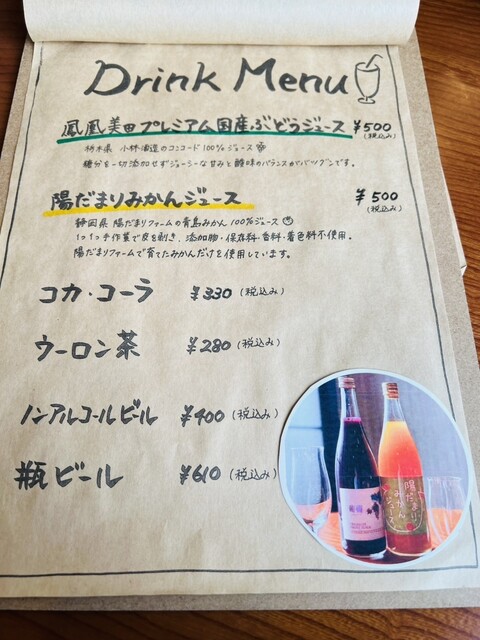 Drink Menu
鳳凰美田プレミアム国産ぶどうジュース ¥500
(税込み)
栃木県 小林酒造のコンコード100%ジュース
糖分を一切添加せずジューシーな甘みと酸味のバランスがバツグンです。
陽だまりみかんジュース ¥500
(税込み)
静岡県 陽だまりファームの青島みかん100%ジュース
1つ1つ手作業で皮を剥き、添加物・保存料・香料・着色料不使用。
陽だまりファームで育てたみかんだけを使用しています。
コカ・コーラ ¥330 (税込み)
ウーロン茶 ¥280 (税込み)
ノンアルコールビール ¥400 (税込み)
瓶ビール ¥610 (税込み)
陽だまり
みかん